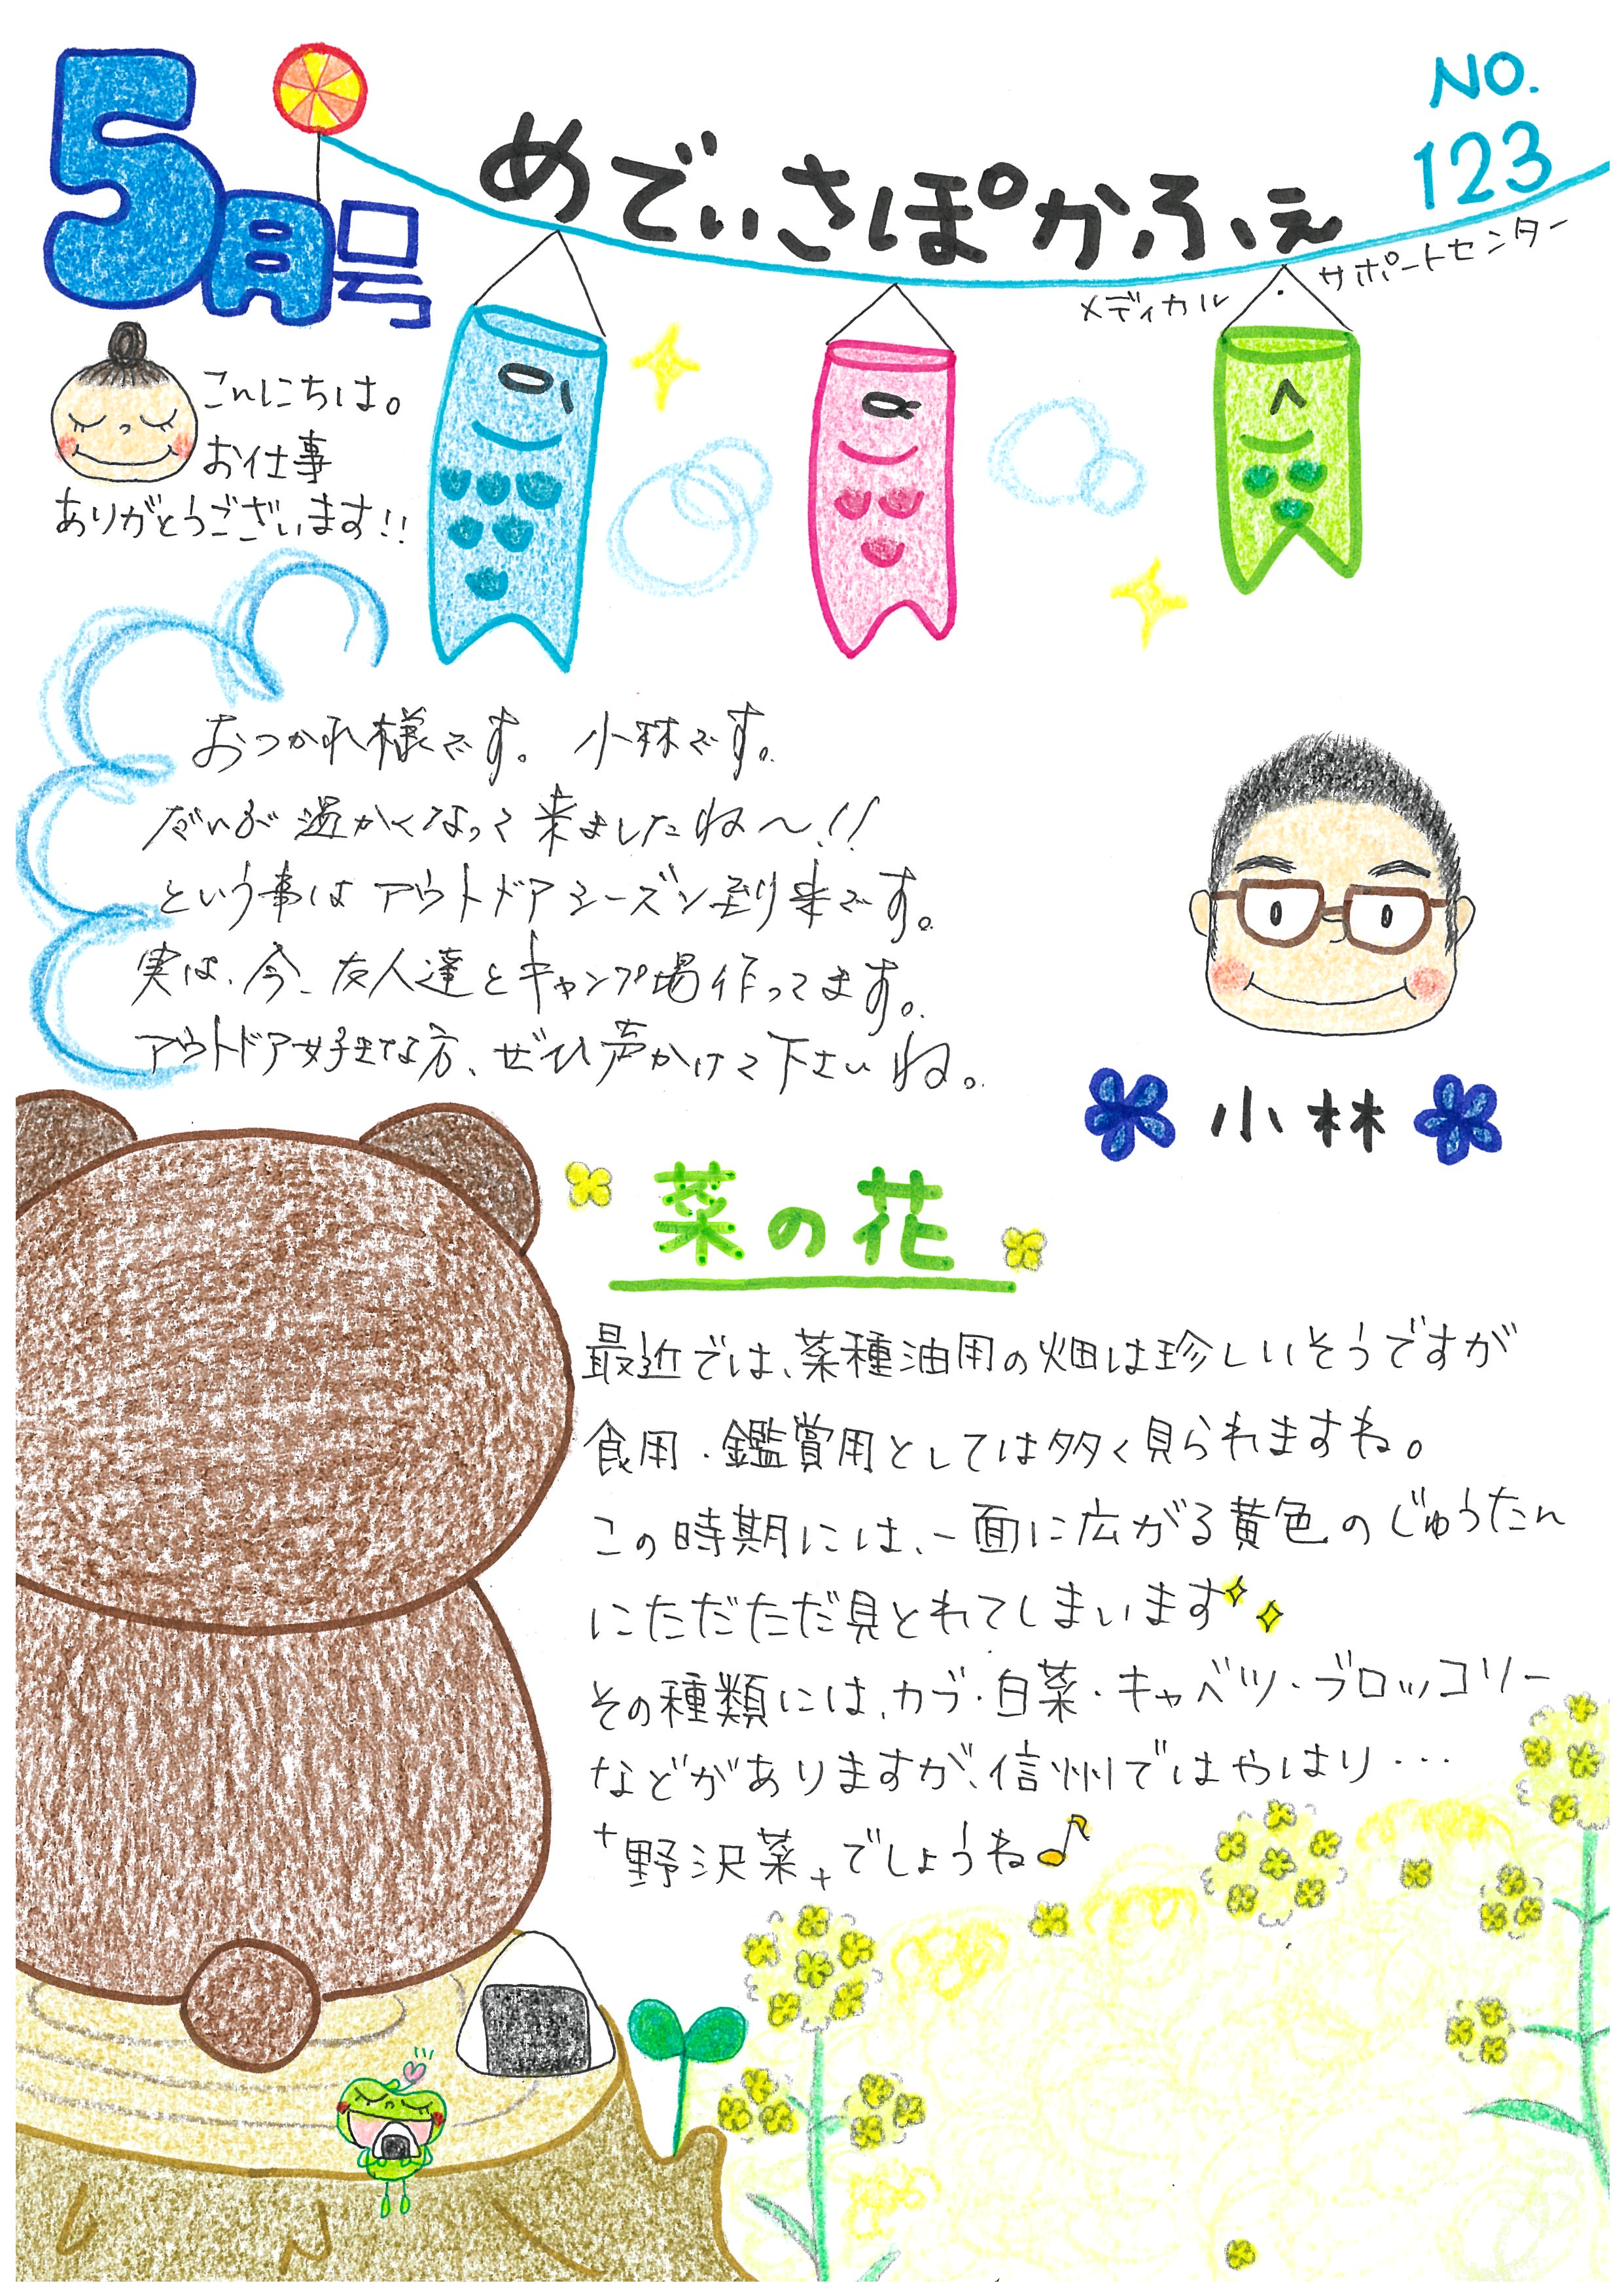 5月号
めでぃさぽかふぇ
NO.
123
メディカル・サポートセンター
こんにちは。
お仕事
ありがとうございます!!
おつかれ様です。 小林です。
だいぶ温かくなって来ましたね〜!!
という事はアウトドアシーズン到来です。
実は、今、友人達とキャンプ場作ってます。
アウトドア好きな方、ぜひ声かけて下さいね。
小林
菜の花
最近では、菜種油用の畑は珍しいそうですが
食用・鑑賞用としては多く見られますね。
この時期には、一面に広がる黄色のじゅうたん
にただただ見とれてしまいます
その種類には、カブ・白菜・キャベツ・ブロッコリー
などがありますが、信州ではやはり・・・
"野沢菜"でしょうね♪